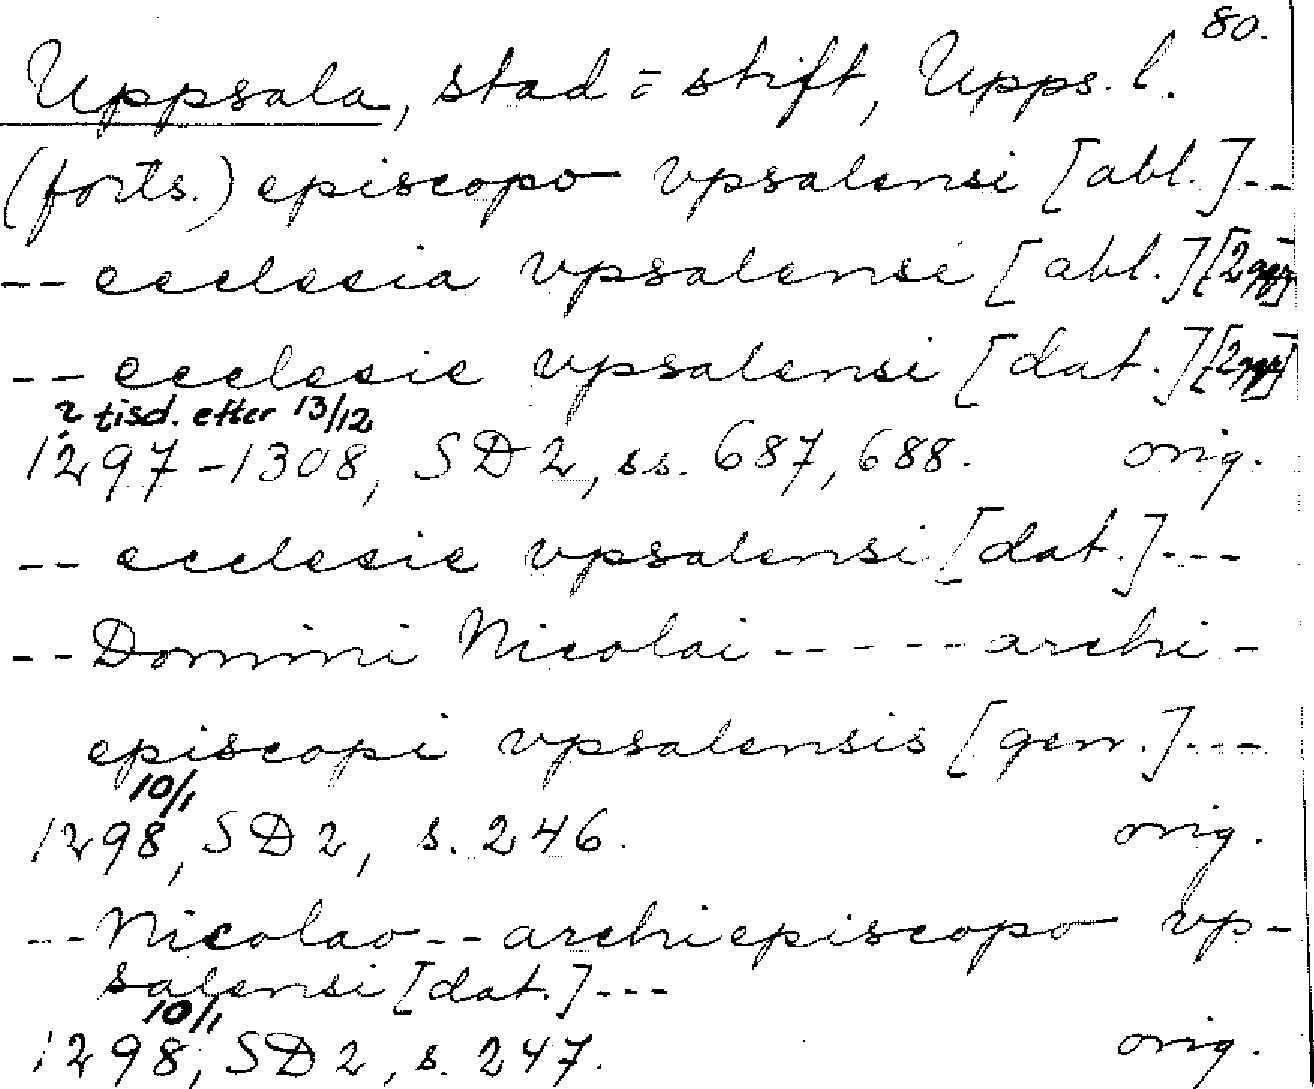 80.
Uppsala, stad = stift, Upps. l.
(forts.) episcopo vpsalensi [abl.]--
-- ecclesia vpsalensi [abl.] [2ggr]
-- ecclesie vpsalensi [dat.] [2ggr]
? tisd. efter 13/12
1297-1308, SD 2, ss. 687, 688. orig.
-- ecclesie vpsalensi [dat.]---
-- Domini Nicolai ----- archi-
episcopi vpsalensis [gen.]---
10/1
1298, SD 2, s. 246. orig.
-- Nicolao -- archiepiscopo vp-
salensi [dat.]---
10/1
1298, SD 2, s. 247. orig.